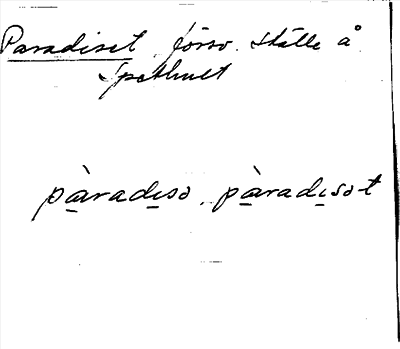 Paradiset försv. ställe å
Spethult
pàradiso, pàradisot